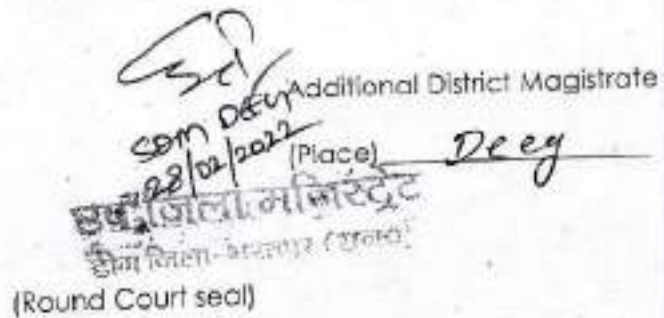 Additional District Magistrate
SDM Deeg
28/02/2022
(Place) Deeg
उप जिला मजिस्ट्रेट
डीग जिला-भरतपुर (राज०)
(Round Court seal)